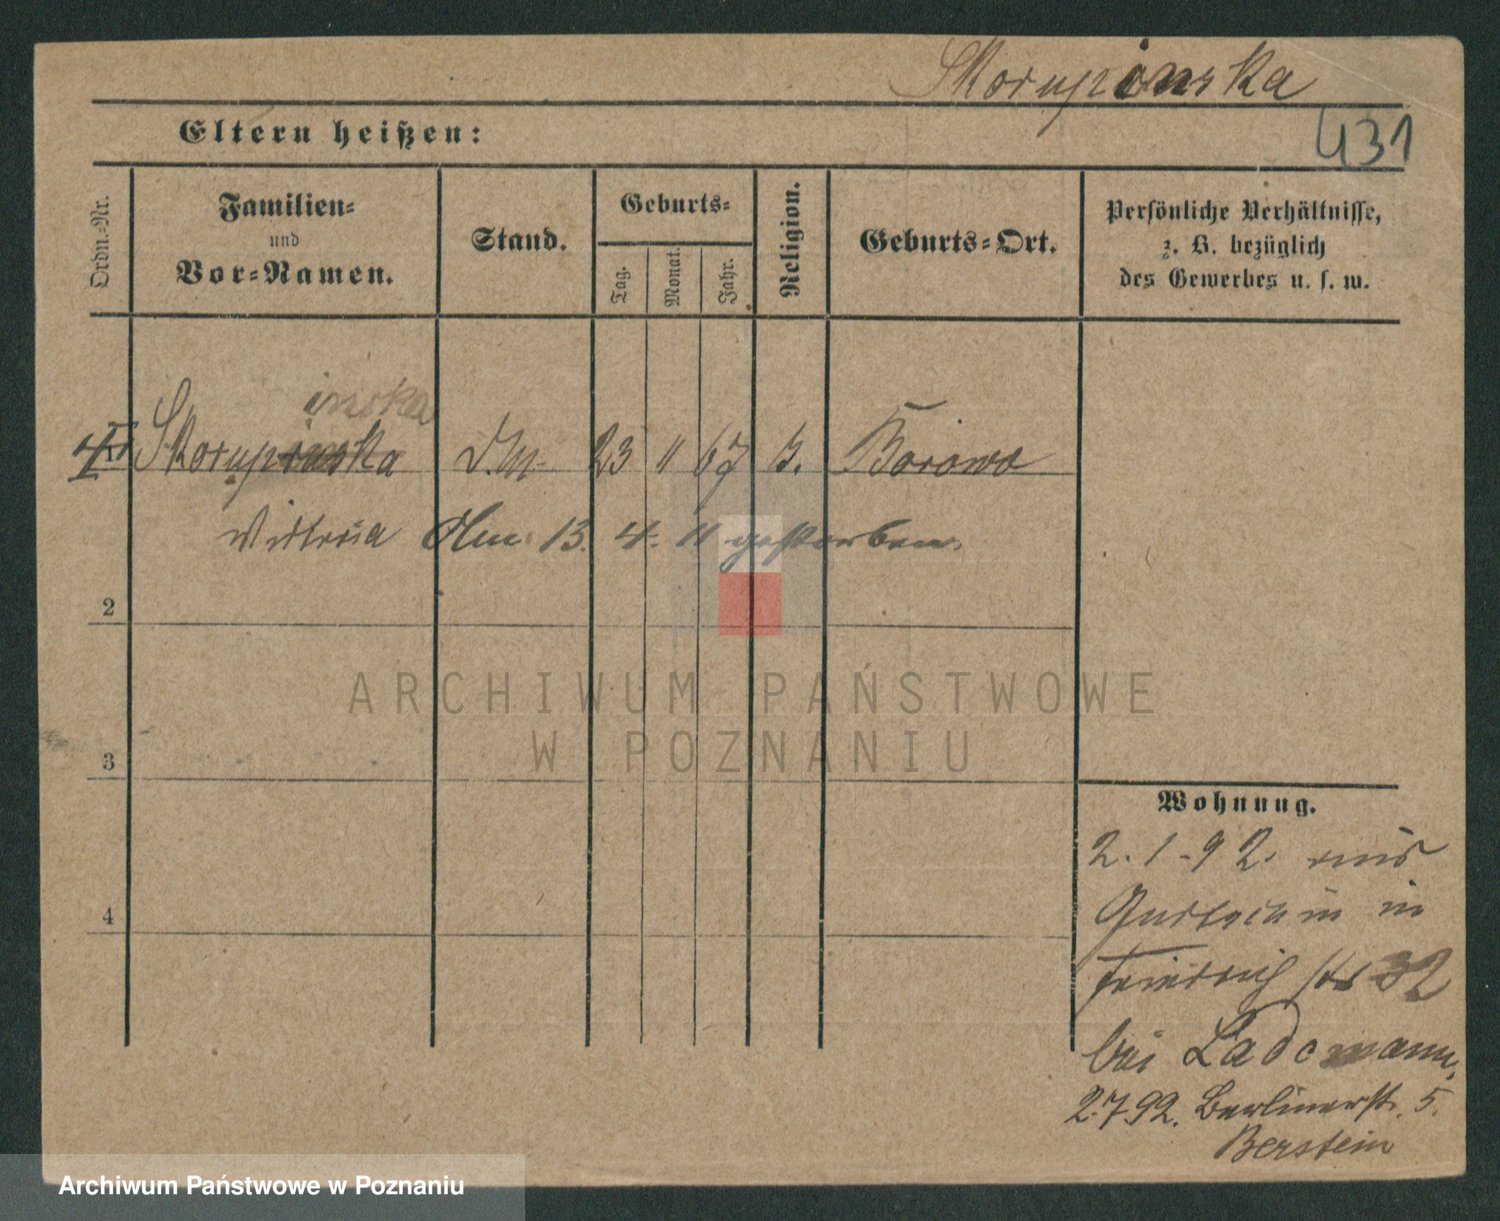 Skorupinska
431
Eltern heißen:
Ordn.-Nr.
Familien-
und
Vor-Namen.
Stand.
Geburts-
Tag.
Monat.
Jahr.
Religion.
Geburts-Ort.
Persönliche Verhältnisse,
z. B. bezüglich
des Gewerbes u. s. w.
inska
Skorupinska d. M. 23 11 67 Borowo
Viktoria Am 13. 4. 11 gestorben.
2
3
4
ARCHIWUM PAŃSTWOWE
W POZNANIU
Wohnung.
2.1.92. aus
in
Friedrich str 32
bei Ladcmann,
2.7.92. Berlinerstr. 5.
Berstein
Archiwum Państwowe w Poznaniu